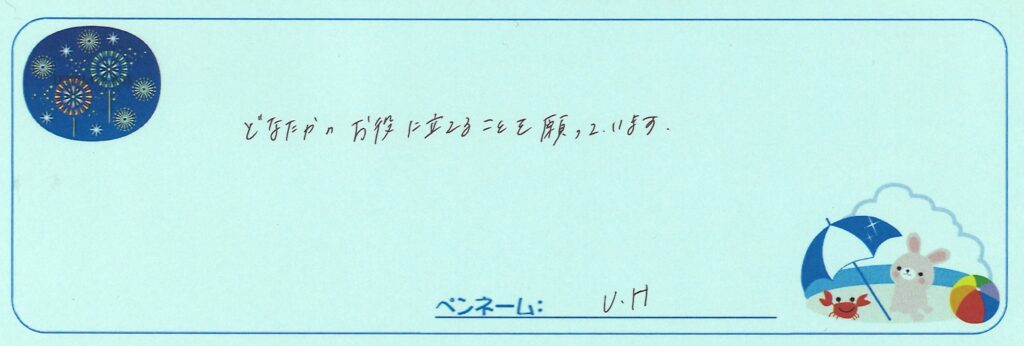 どなたかのお役に立てることを願っています.
ペンネーム: U.H